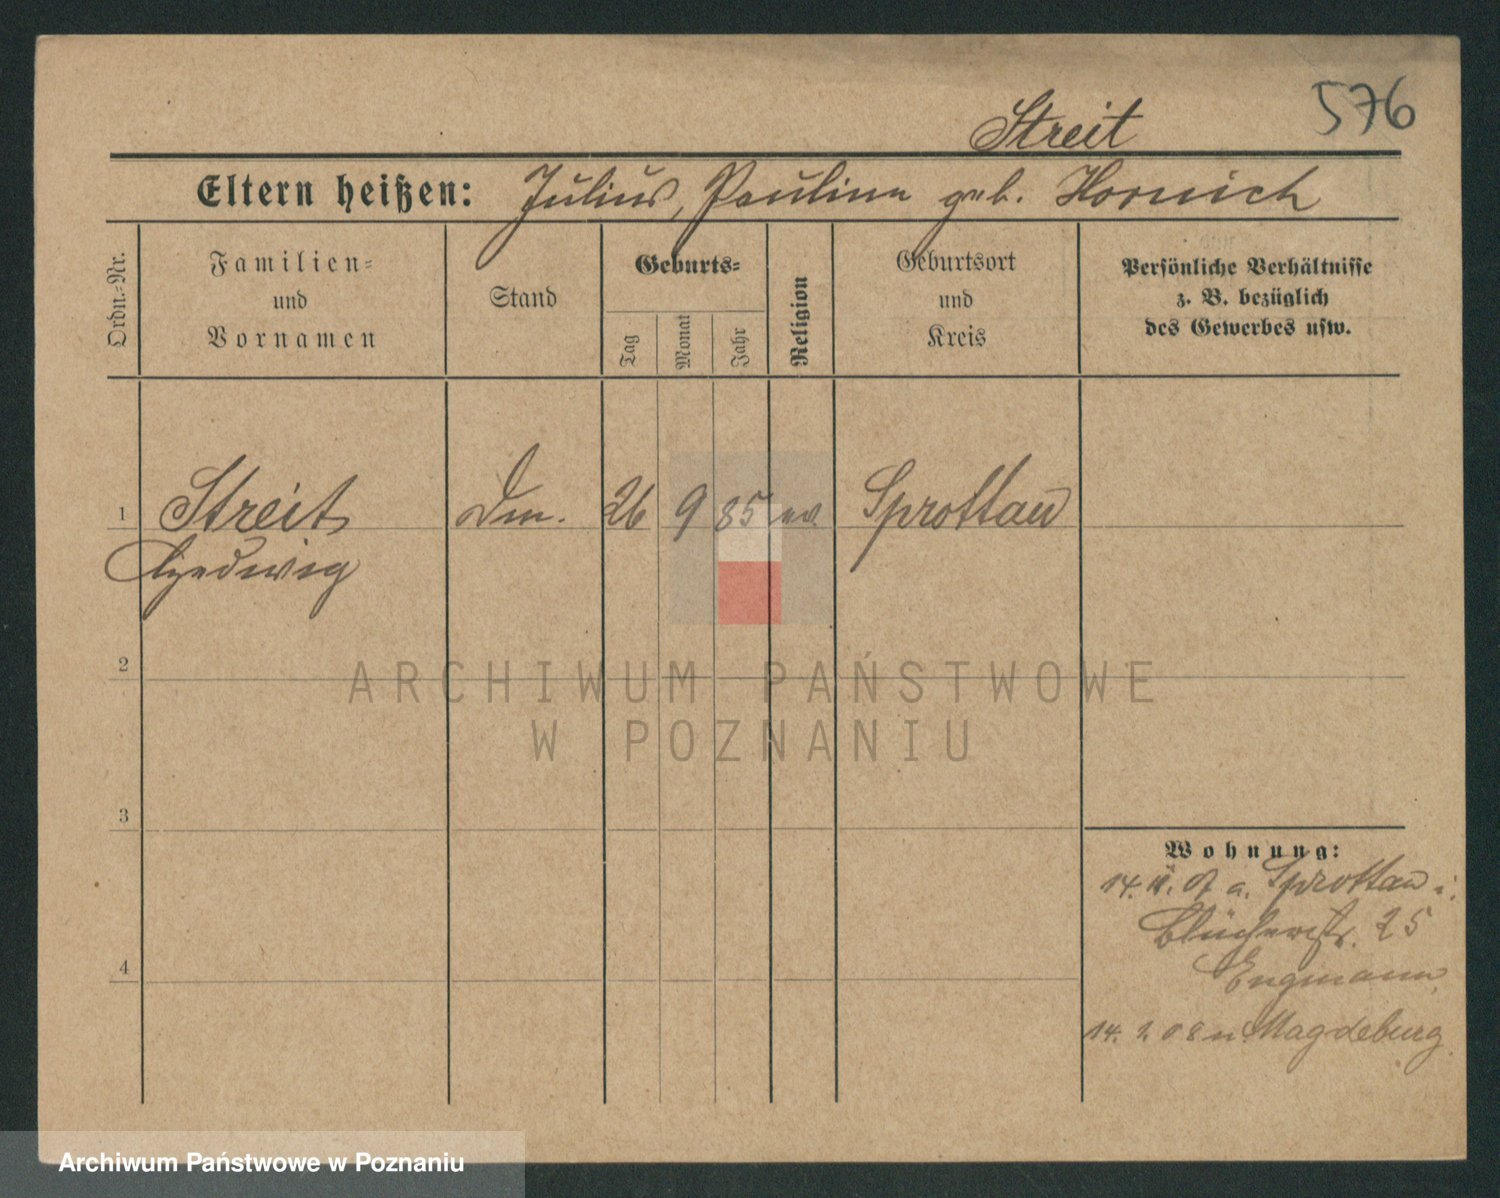 576
Streit
Eltern heißen: Julius, Pauline geb. Hornich
Ordn.-Nr.
Familien-
und
Vornamen
Stand
Geburts-
Tag
Monat
Jahr
Religion
Geburtsort
und
Kreis
Persönliche Verhältnisse
z. B. bezüglich
des Gewerbes usw.
1 Streit Dm. 26 9 85 ev. Sprottau
Hedwig
2
3
4
Wohnung:
14. a. Sprottau i.
Blücherstr. 25
Engmann.
14. 2 08 n. Magdeburg.
ARCHIWUM PAŃSTWOWE
W POZNANIU
Archiwum Państwowe w Poznaniu